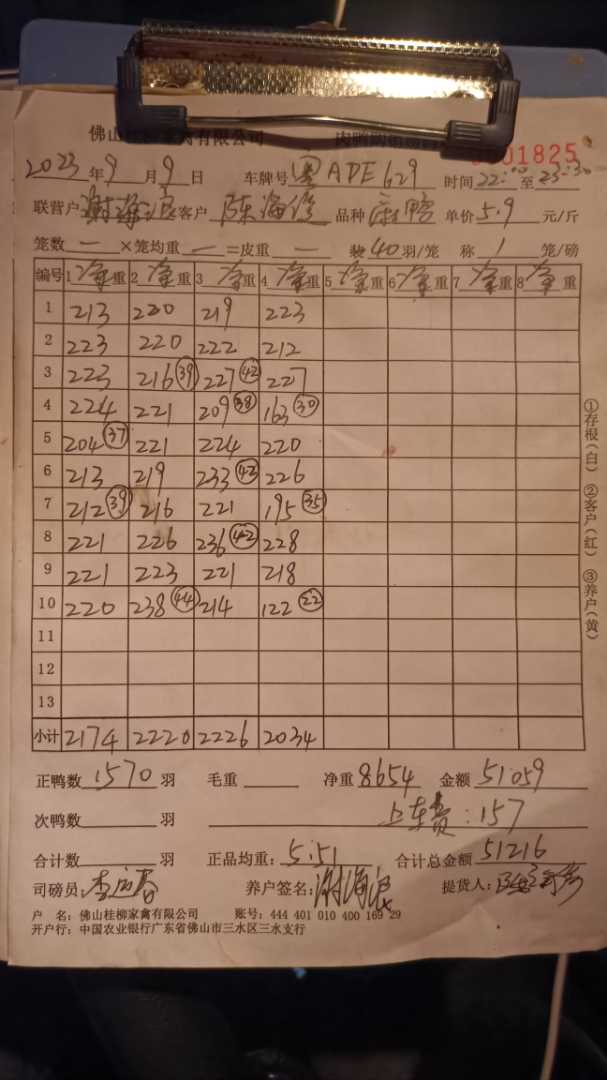 佛山桂柳家禽有限公司
01825
2023年9月9日 车牌号 粤ADE629 时间22:00至23:30
联营户 谢海浪 客户 陈海 品种 单价5.9元/斤
笼数 一 ×笼均重 一 =皮重 一 装40羽/笼 称1笼/磅
编号 1净重 2净重 3净重 4净重 5净重 6净重 7净重 8净重
1 213 220 219 223
2 223 220 222 212
3 223 216(39) 227(42) 227
4 224 221 209(38) 163(30)
5 204(37) 221 224 220
6 213 219 233(42) 226
7 212(39) 216 221 195(35)
8 221 226 236(42) 228
9 221 223 221 218
10 220 238(44) 214 122(22)
11
12
13
小计 2174 2220 2226 2034
正鸭数1570羽 毛重 净重8654 金额51059
次鸭数 羽 上车费:157
合计数 羽 正品均重:5.51 合计总金额51216
司磅员: 养户签名:谢海浪 提货人:
户 名:佛山桂柳家禽有限公司 账号:444 401 010 400 169 29
开户行:中国农业银行广东省佛山市三水区三水支行
①存根(白) ②客户(红) ③养户(黄)